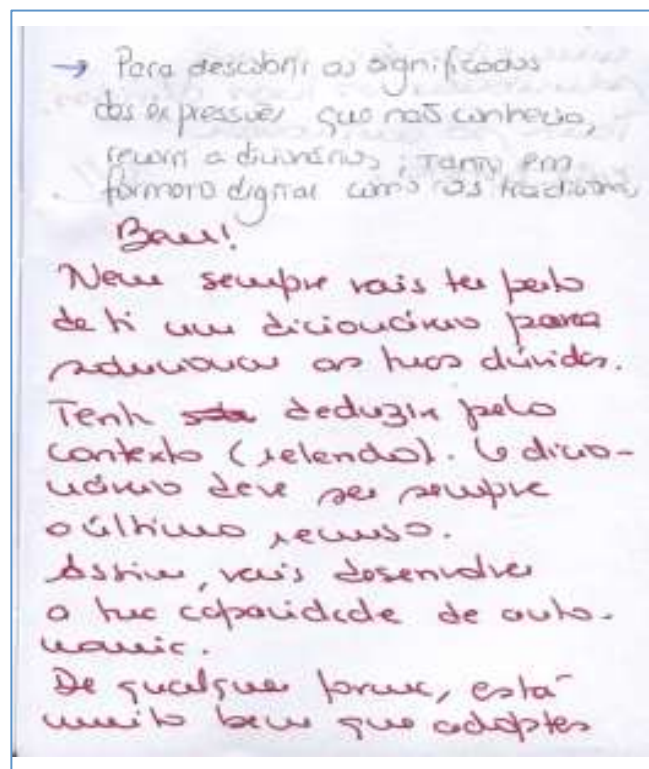 → Para descobrir os significados
das expressões que não conhecia,
recorri a dicionários, tanto em
formato digital como os tradicionais
Bem!
Nem sempre vais ter perto
de ti um dicionário para
solucionar as tuas dúvidas.
Tenta deduzir pelo
contexto (relendo). O dicio-
nário deve ser sempre
o último recurso.
Assim, vais desenvolver
a tua capacidade de auto-
nomia.
De qualquer forma, está
muito bem que adoptes